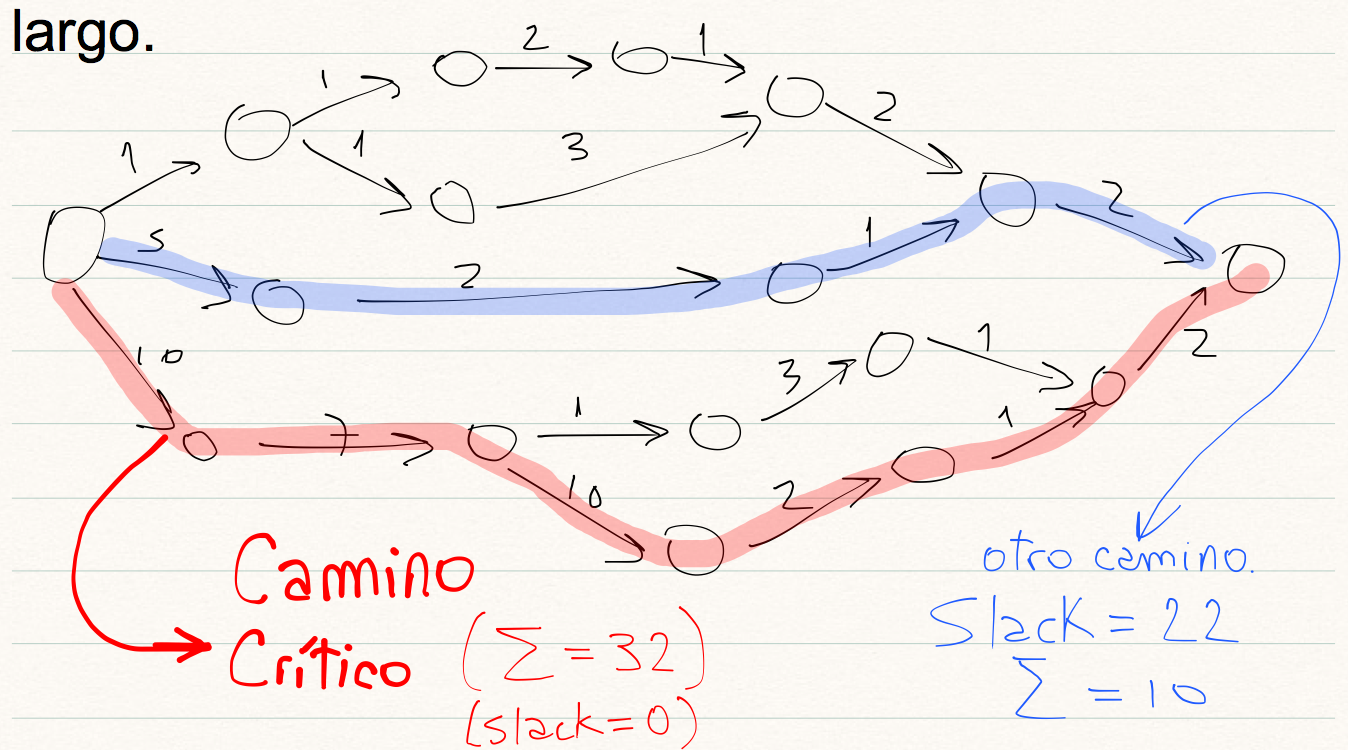 largo.
2 1
1
2
1 1 3
2
5 1
2
10 1
3 2
7 1 1
10 2
Camino
Crítico
(Σ = 32)
(slack=0)
otro camino.
Slack = 22
Σ = 10